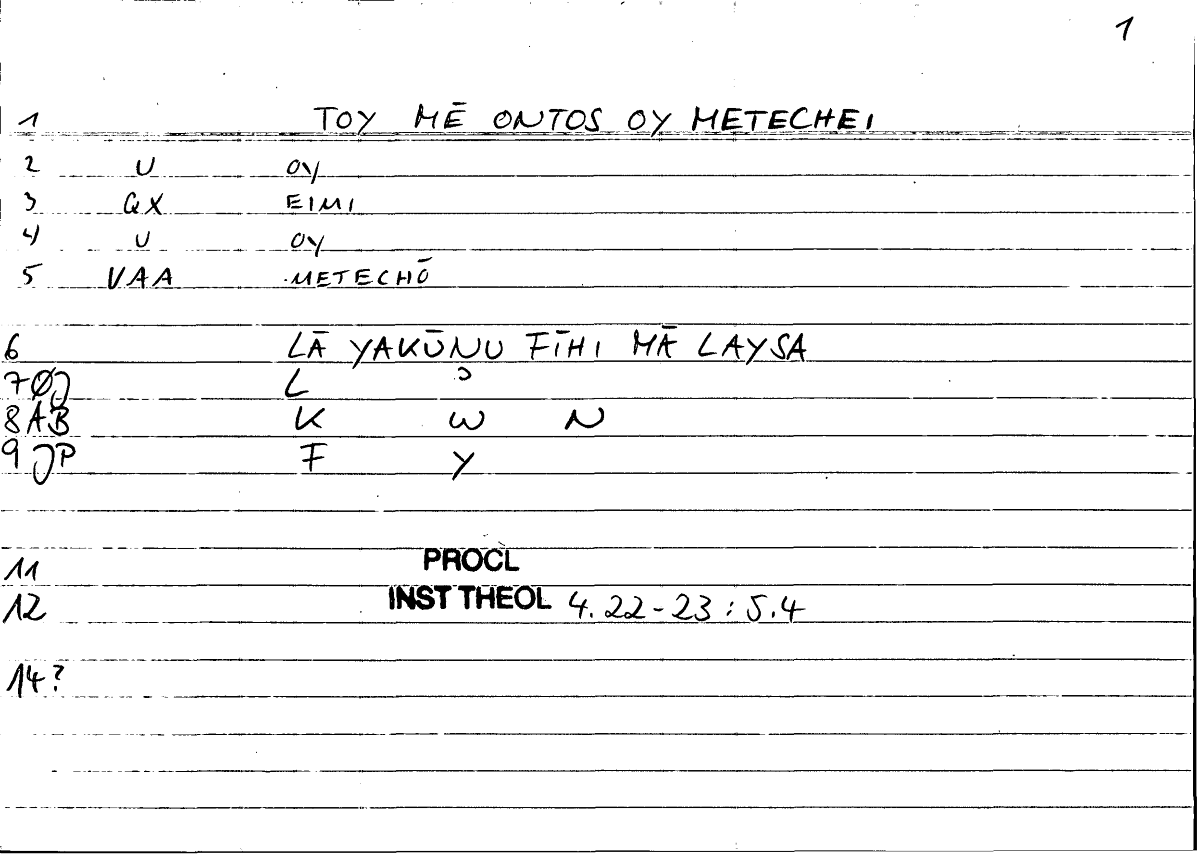 1
1 TOY MĒ ONTOS OY METECHEI
2 U OY
3 QX EIMI
4 U OY
5 VAA METECHŌ
6 LĀ YAKŪNU FĪHI MĀ LAYSA
7 ØJ L ʾ
8 AB K W N
9 JP F Y
11 PROCL
12 INST THEOL 4.22-23 : 5.4
14?